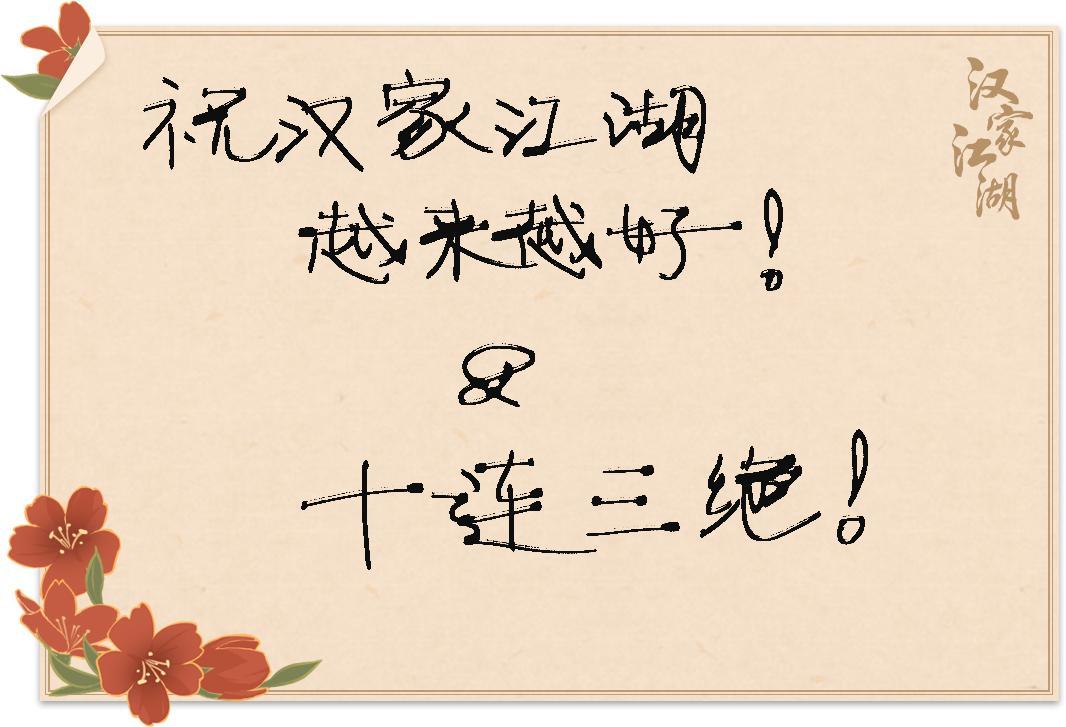 祝汉家江湖
越来越好!
&
十连三绝!
汉家江湖